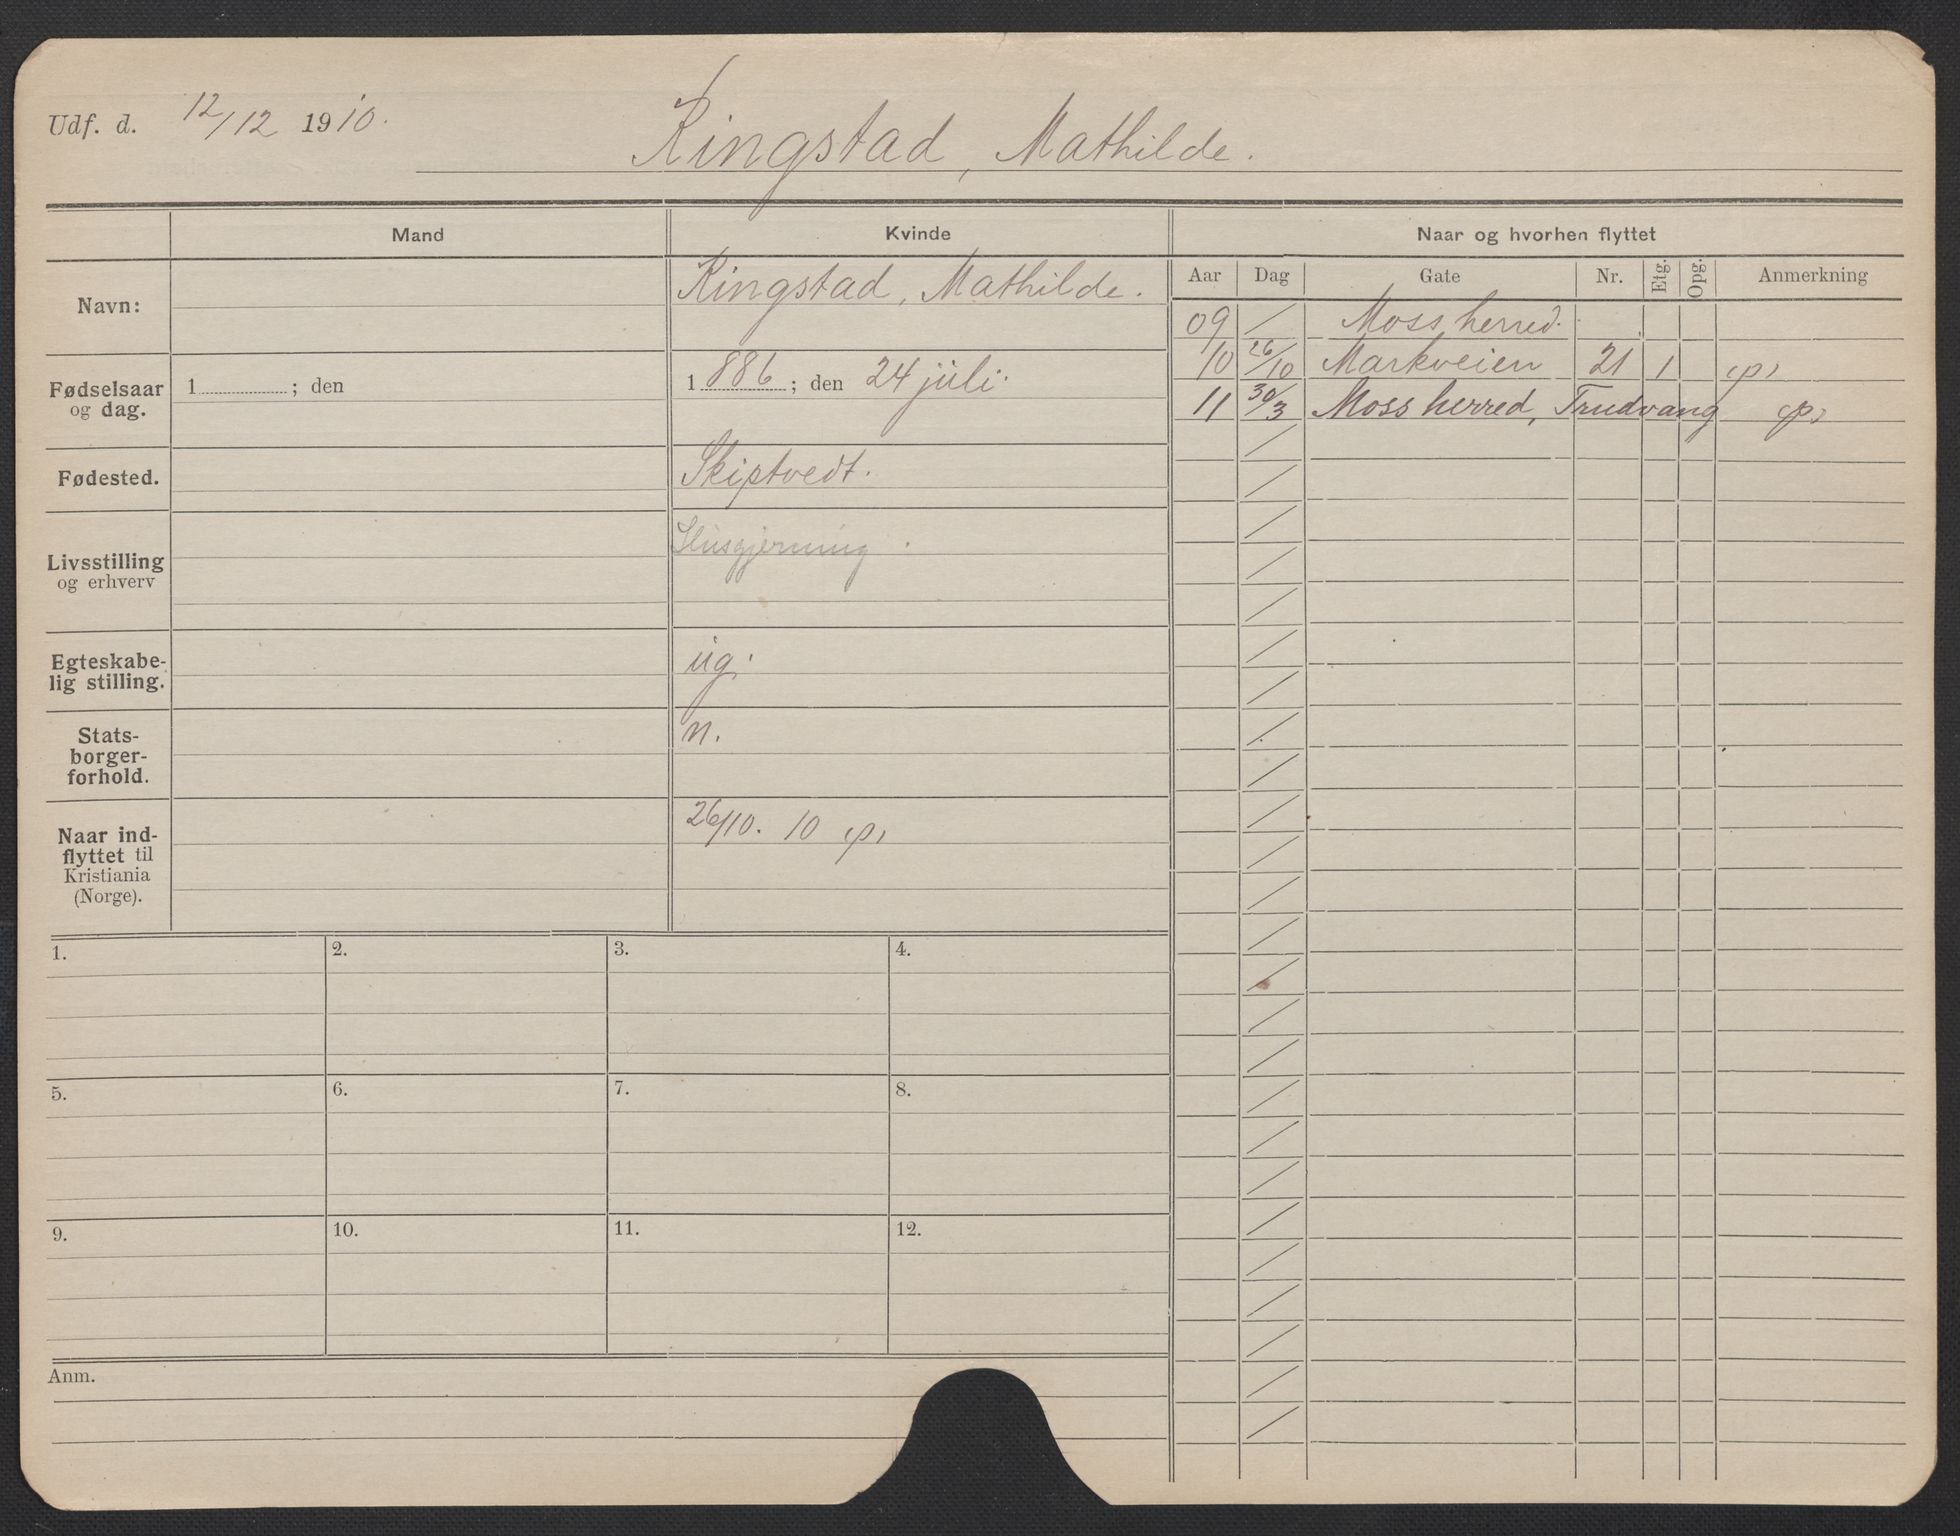 Udf. d. 12/12 1910.
Ringstad, Mathilde.
Mand Kvinde Naar og hvorhen flyttet
Aar Dag Gate Nr. Etg. Opg. Anmerkning
Navn: Ringstad, Mathilde.
09 / Moss herred.
10 26/10 Markveien 21 1 (p)
11 30/3 Moss herred, Trudvang (p)
Fødselsaar
og dag.
1 ; den
1886 ; den 24 juli.
Fødested. Skiptvedt.
Livsstilling
og erhverv
Husgjerning.
Egteskabe-
lig stilling.
ug.
Stats-
borger-
forhold.
n.
Naar ind-
flyttet til
Kristiania
(Norge).
26/10. 10 (p)
1. 2. 3. 4.
5. 6. 7. 8.
9. 10. 11. 12.
Anm.